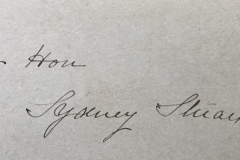 Hon
Sydney Stuar